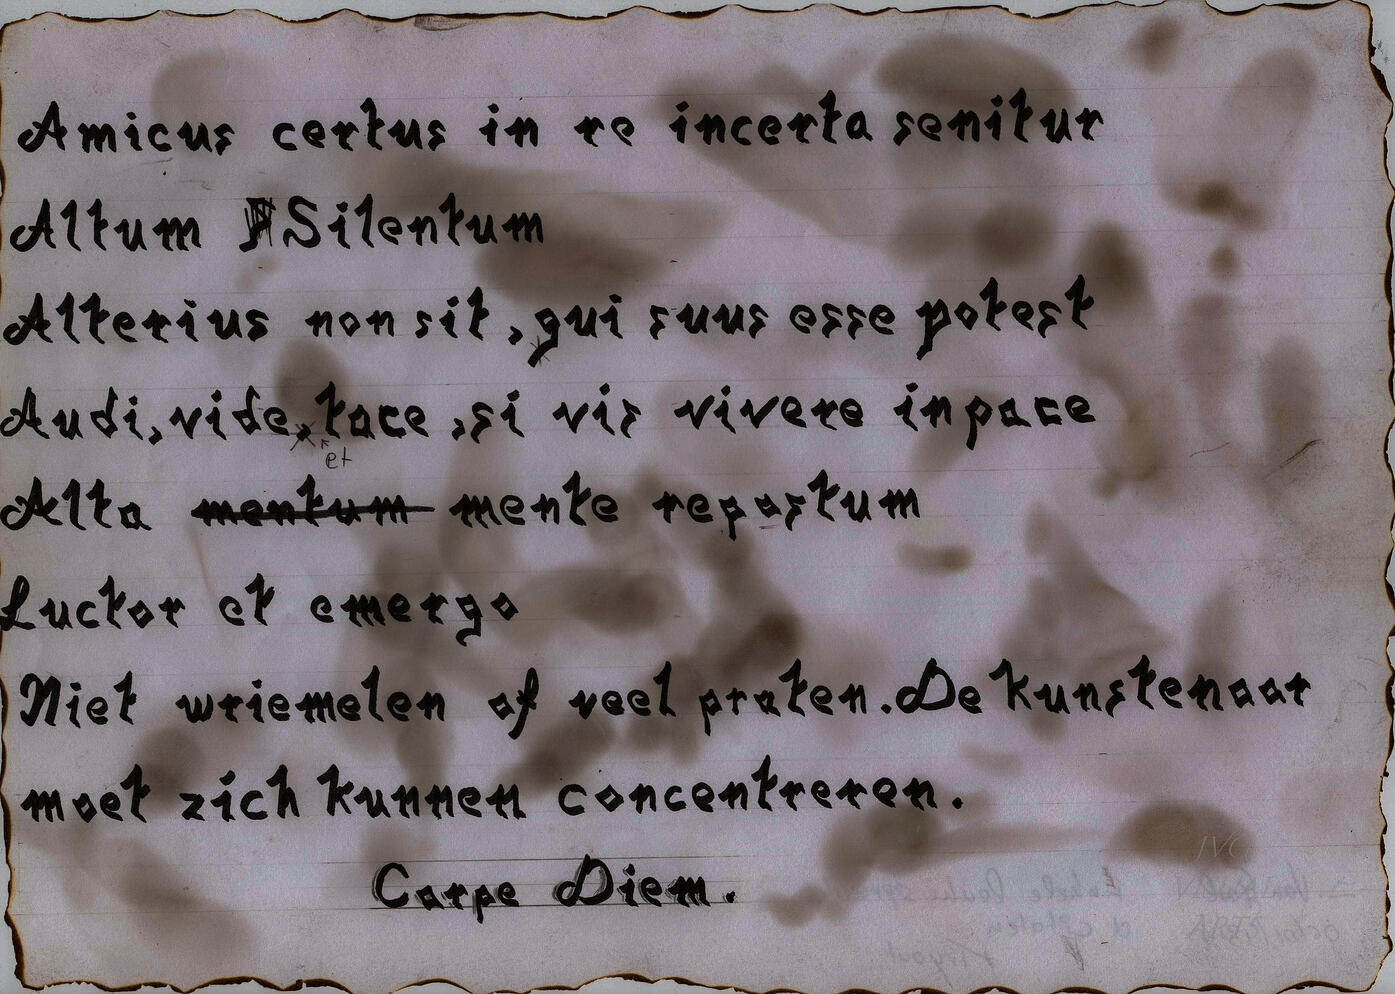 Amicus certus in re incerta senitur
Altum Silentum
Alterius non sit, qui suus esse potest
Audi, vide, tace, si vis vivere in pace
et
Alta mentum mente repostum
Luctor et emergo
Niet wriemelen of veel praten. De kunstenaar
moet zich kunnen concentreren.
Carpe Diem.
JVC